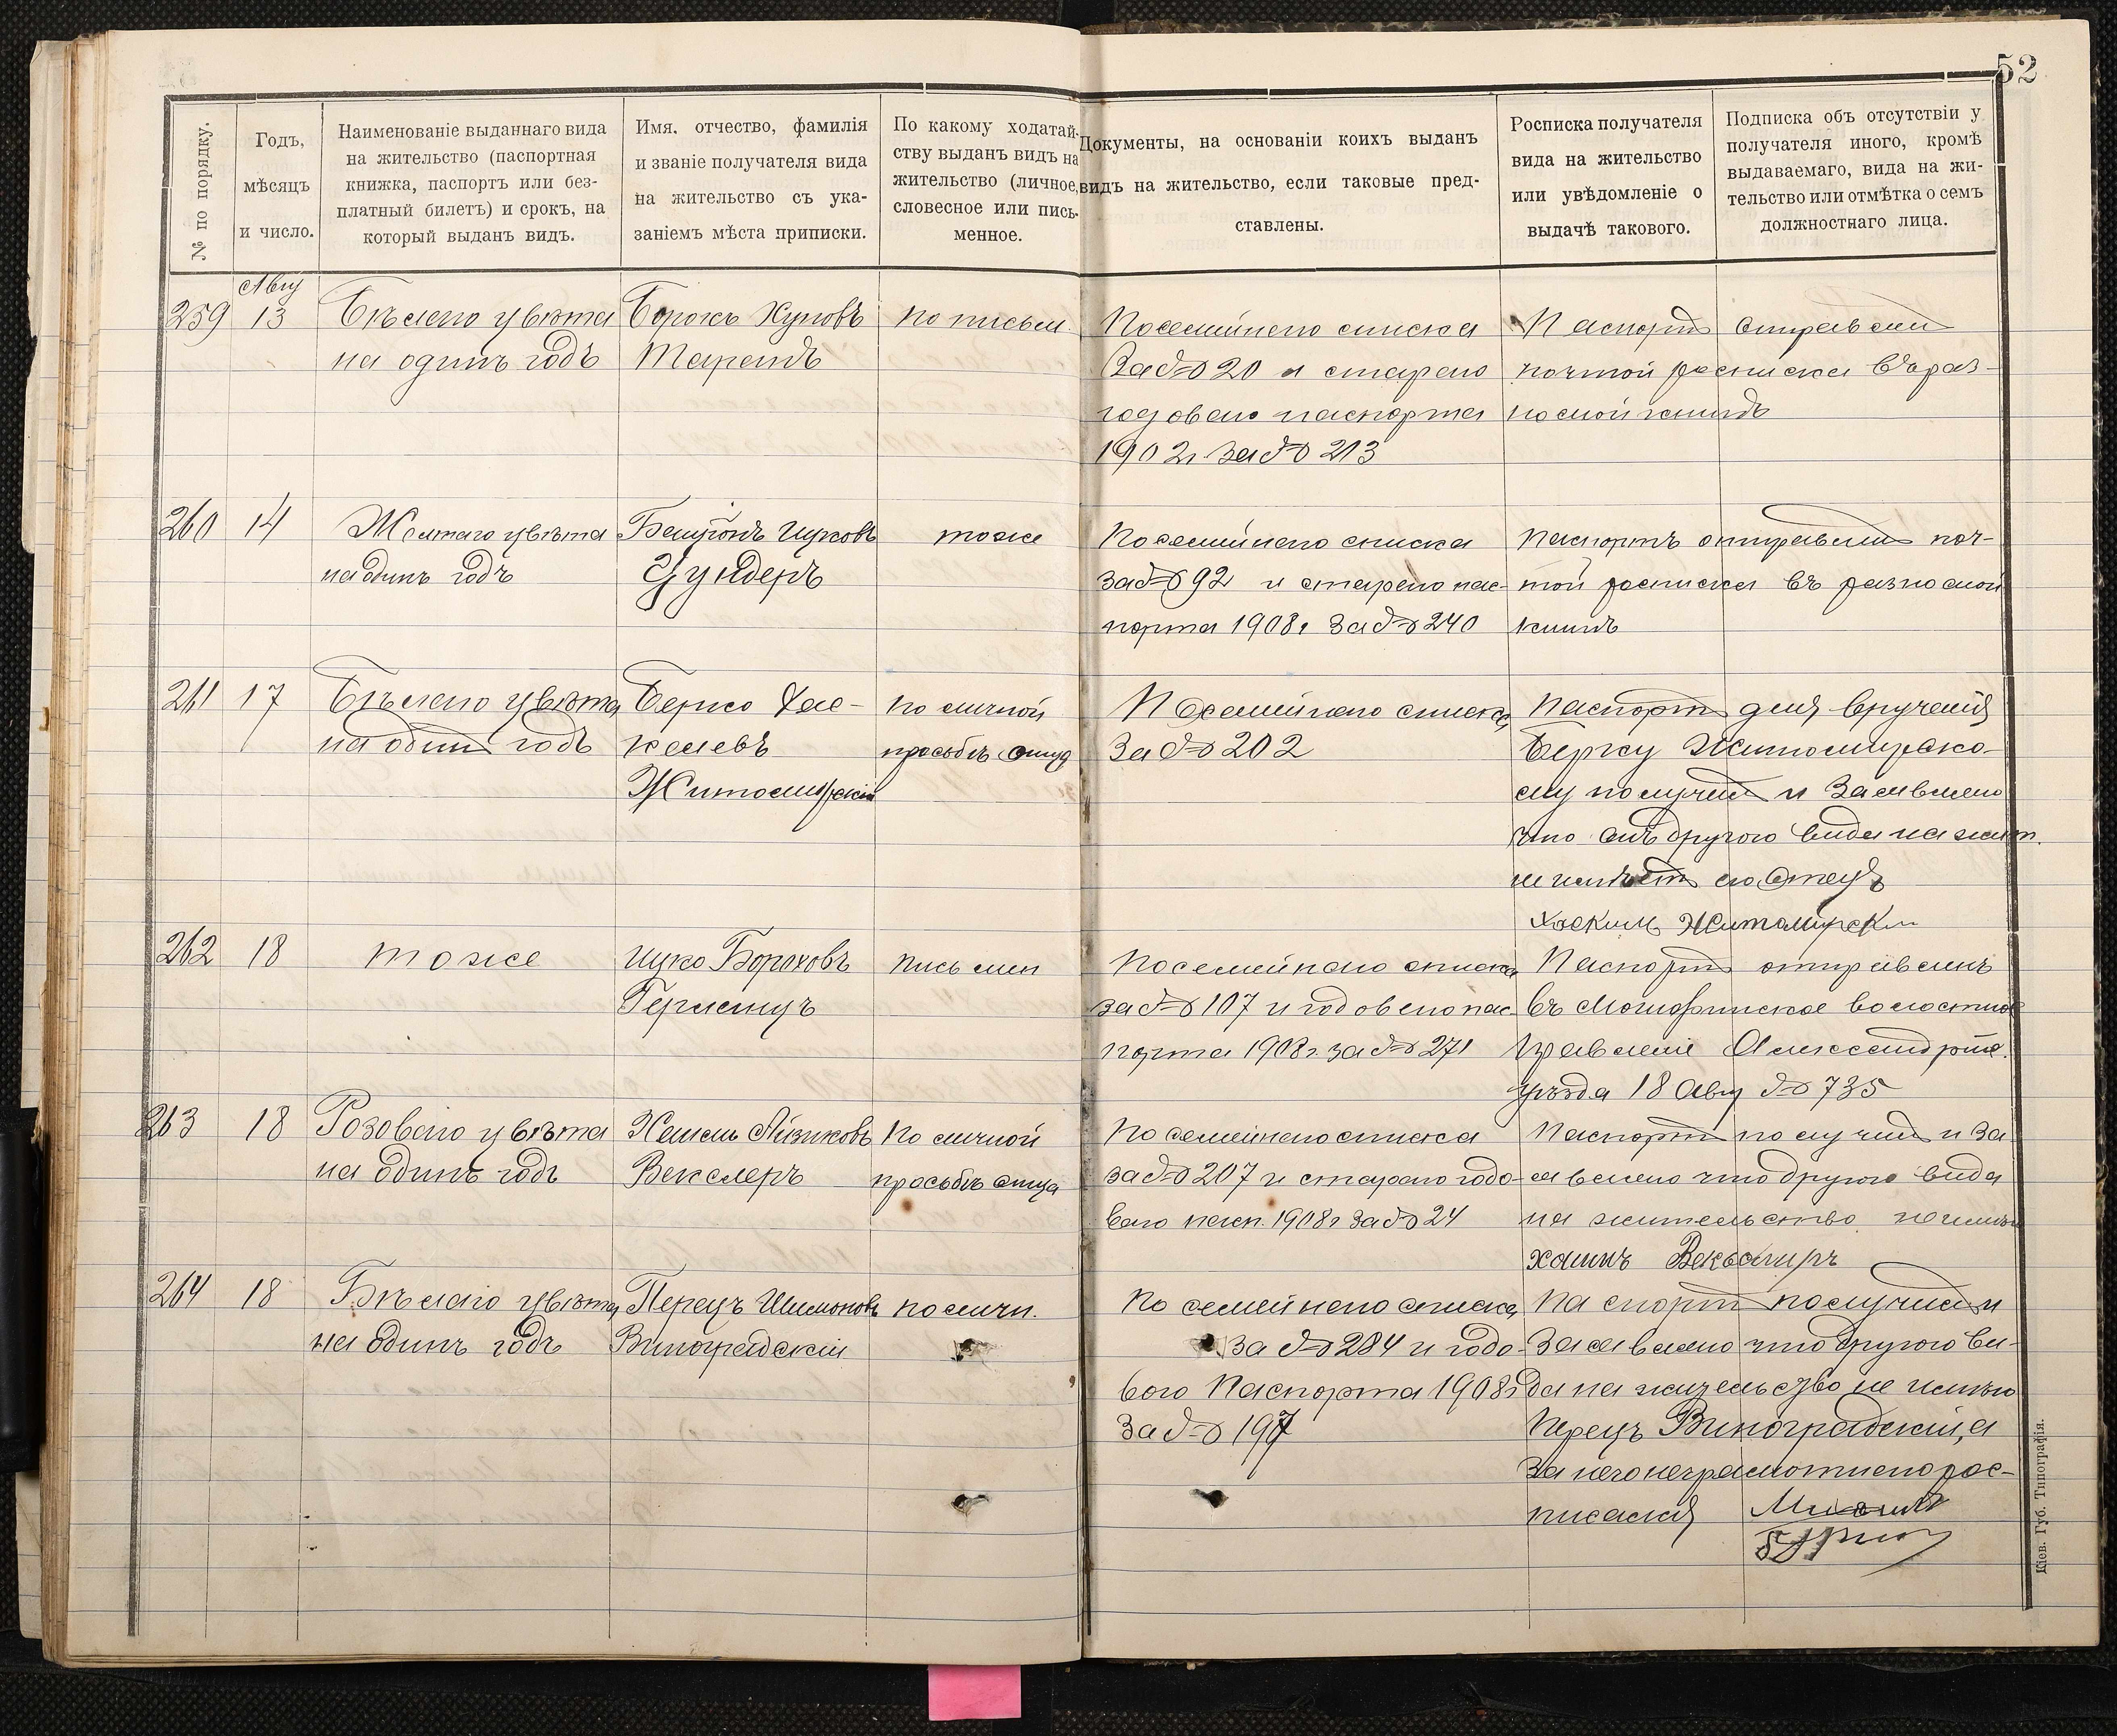 52
№ по порядку.
Годъ,
мѣсяцъ
и число.
Наименованіе выданнаго вида
на жительство (паспортная
книжка, паспортъ или без-
платный билетъ) и срокъ, на
который выданъ видъ.
Имя, отчество, фамилія
и званіе получателя вида
на жительство съ ука-
заніемъ мѣста приписки.
По какому ходатай-
ству выданъ видъ на
жительство (личное,
словесное или пись-
менное.
Документы, на основаніи коихъ выданъ
видъ на жительство, если таковые пред-
ставлены.
Росписка получателя
вида на жительство
или увѣдомленіе о
выдачѣ такового.
Подписка объ отсутствіи у
получателя иного, кромѣ
выдаваемаго, вида на жи-
тельство или отмѣтка о семъ
должностнаго лица.
Авгу
259
13
Бѣлаго цвѣта
на одинъ годъ
Борохъ
по письм.
Посемейнаго списка
За № 20 и стараго
годоваго паспорта
1902 г. за № 213
Паспортъ отправленъ
почтой росписка въ раз-
носной книгѣ
260
14
Желтаго цвѣта
на одинъ годъ
Ицковъ
Цундеръ
тоже
Посемейнаго списка
за № 92 и стараго пас-
порта 1908 г за № 240
Паспортъ отправленъ поч-
той росписка въ разносной
книгѣ
261
17
Бѣлаго цвѣта
на одинъ годъ
Берко Хас-
келевъ
Житомирскій
по личной
просьбѣ отца
Посемейнаго списка
за № 202
Паспортъ для врученія
Берку Житомирско-
му получилъ и заявляю
что онъ другого вида на жит.
не имѣетъ его Отецъ
Хаскиль Житомирски
262
18
тоже
Ицко Бороховъ
письмен
Посемейнаго списка
за № 107 и годоваго пас-
порта 1908 г. за № 271
Паспортъ отправленъ
въ волостное
правленіе Александрій.
уѣзда 18 Авгу № 735
263
18
Розоваго цвѣта
на одинъ годъ
Айзиковъ
Векслеръ
По личной
просьбѣ отца
по семейнаго списка
за № 207 и стараго годо-
ваго пасп. 1908 г за № 24
Паспортъ получилъ и за-
являю что другого вида
на жительство неимѣю
264
18
Бѣлаго цвѣта
на одинъ годъ
Перецъ Шимоновъ
Виноградскій
по личн.
по семейнаго списка
за № 284 и годо-
вого Паспорта 1908 г
За № 197
Паспортъ получилъ и
заявляю что другого ви-
да на жительство не имѣю
Перецъ Виноградскій, а
за него неграмотнаго рос-
писался
Кіев. Губ. Типографія.